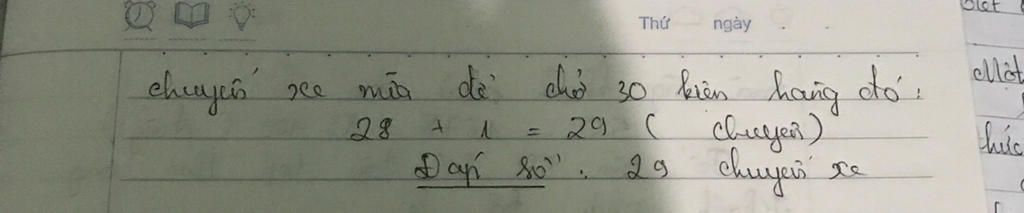 Thứ ngày
chuyến xe nữa để chở 30 kiện hàng đó:
28 + 1 = 29 ( chuyến)
Đáp số: 29 chuyến xe
Một